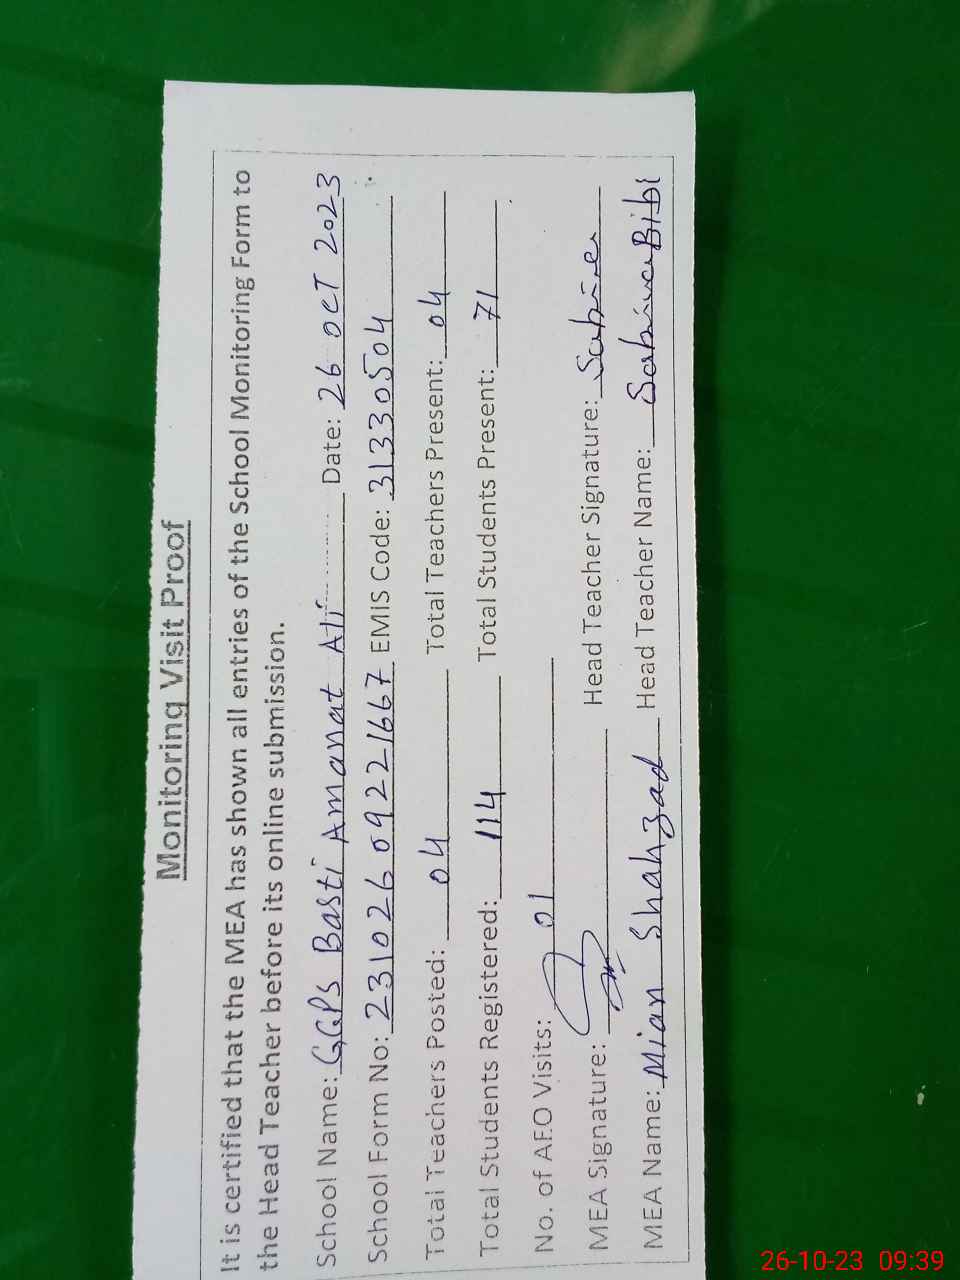 Monitoring Visit Proof
It is certified that the MEA has shown all entries of the School Monitoring Form to
the Head Teacher before its online submission.
School Name: GGPS Basti Amanat Ali Date: 26 OCT 2023
School Form No: 231026 09221667 EMIS Code: 31330504
Total Teachers Posted: 04 Total Teachers Present: 04
Total Students Registered: 114 Total Students Present: 71
No. of AEO Visits: 01
MEA Signature: Head Teacher Signature:
MEA Name: Mian Shahzad Head Teacher Name: Sabina Bibi
26-10-23 09:39